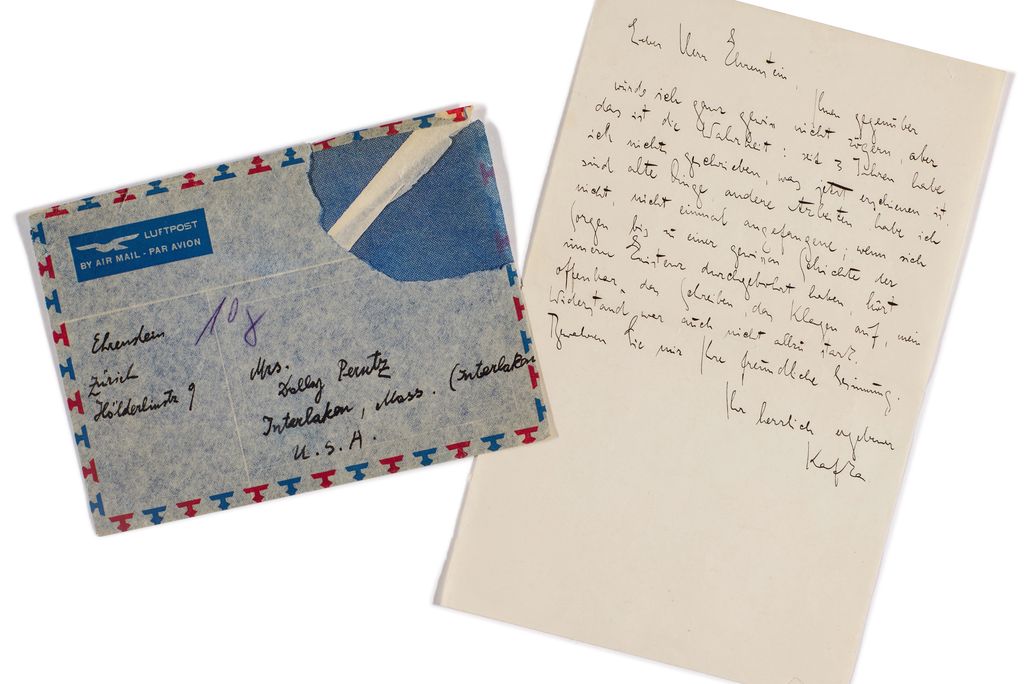 LUFTPOST
BY AIR MAIL - PAR AVION
10 g
Ehrenstein
Zürich
Hölderlinstr 9
Mrs.
Dolly Perutz
Interlaken, Mass. (Interlaken
U.S.A.
Lieber Herr Ehrenstein,
Ihnen gegenüber
würde ich ganz gewiss nicht zögern, aber
das ist die Wahrheit: seit 3 Jahren habe
ich nichts geschrieben, was jetzt erschienen ist
sind alte Dinge, andere Arbeiten habe ich
nicht, nicht einmal angefangene; wenn sich
Sorgen bis zu einer gewissen Schichte der
innern Existenz durchgebohrt haben, hört
offenbar das Schreiben, das Klagen auf, mein
Widerstand war auch nicht allzu stark.
Bewahren Sie mir Ihre freundliche Gesinnung.
Ihr herzlich ergebener
Kafka